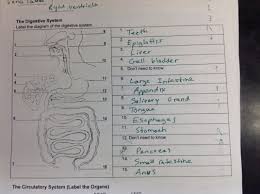 Right ventricle
The Digestive System
Label the diagram of the digestive system
1. Teeth
2. Epiglottis
3. Liver
4. Gall bladder
5. Don't need to know
6. Large Intestine
7. Appendix
8. Salivary Grand
9. Tongue
10. Esophages
11. Stomach
12. Don't need to know
13. Pancreas
14. Small intestine
15. Anus
The Circulatory System (Label the Organs)